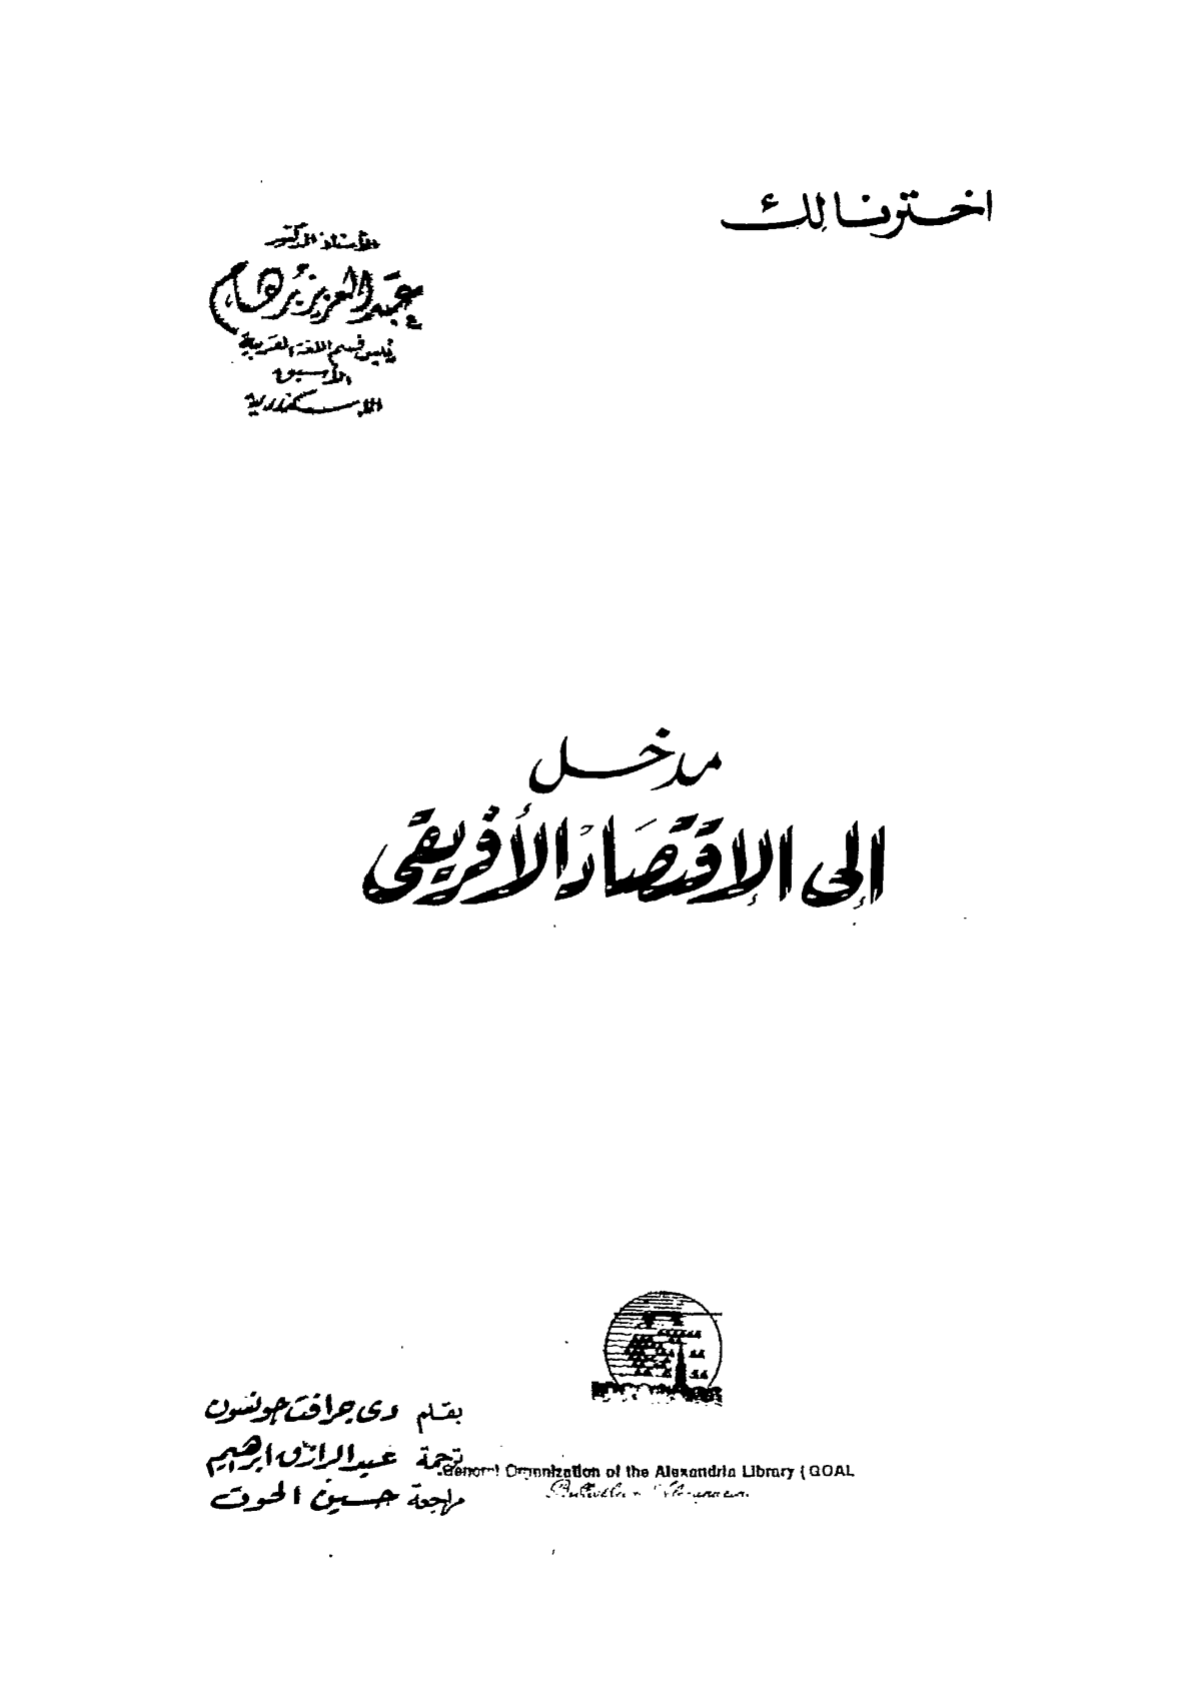 اخترنا لك
الأستاذ الدكتور
عبد العزيز برهام
رئيس قسم اللغة العربية
الأسبق
الاسكندرية
مدخل
إلى الإقتصاد الأفريقى
بقلم دى جرافت جونسون
ترجمة عبد الرازق ابراهيم
مراجعة حسين الحوت
General Organization of the Alexandria Library ( GOAL